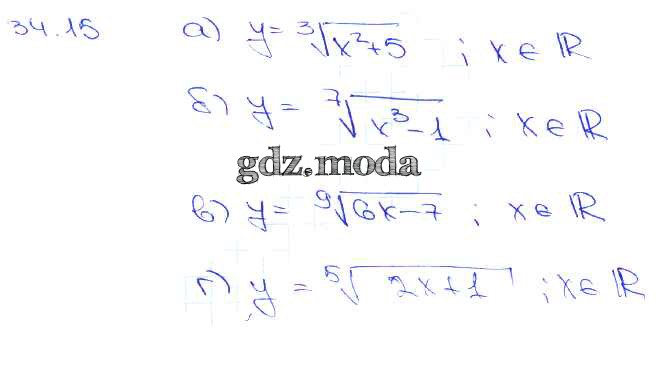 34.15 а) y = ∛(x²+5) ; x ∈ ℝ
б) y = ⁷√(x³-1) ; x ∈ ℝ
gdz.moda
в) y = ⁹√(6x-7) ; x ∈ ℝ
г) y = ⁵√(2x+1) ; x ∈ ℝ